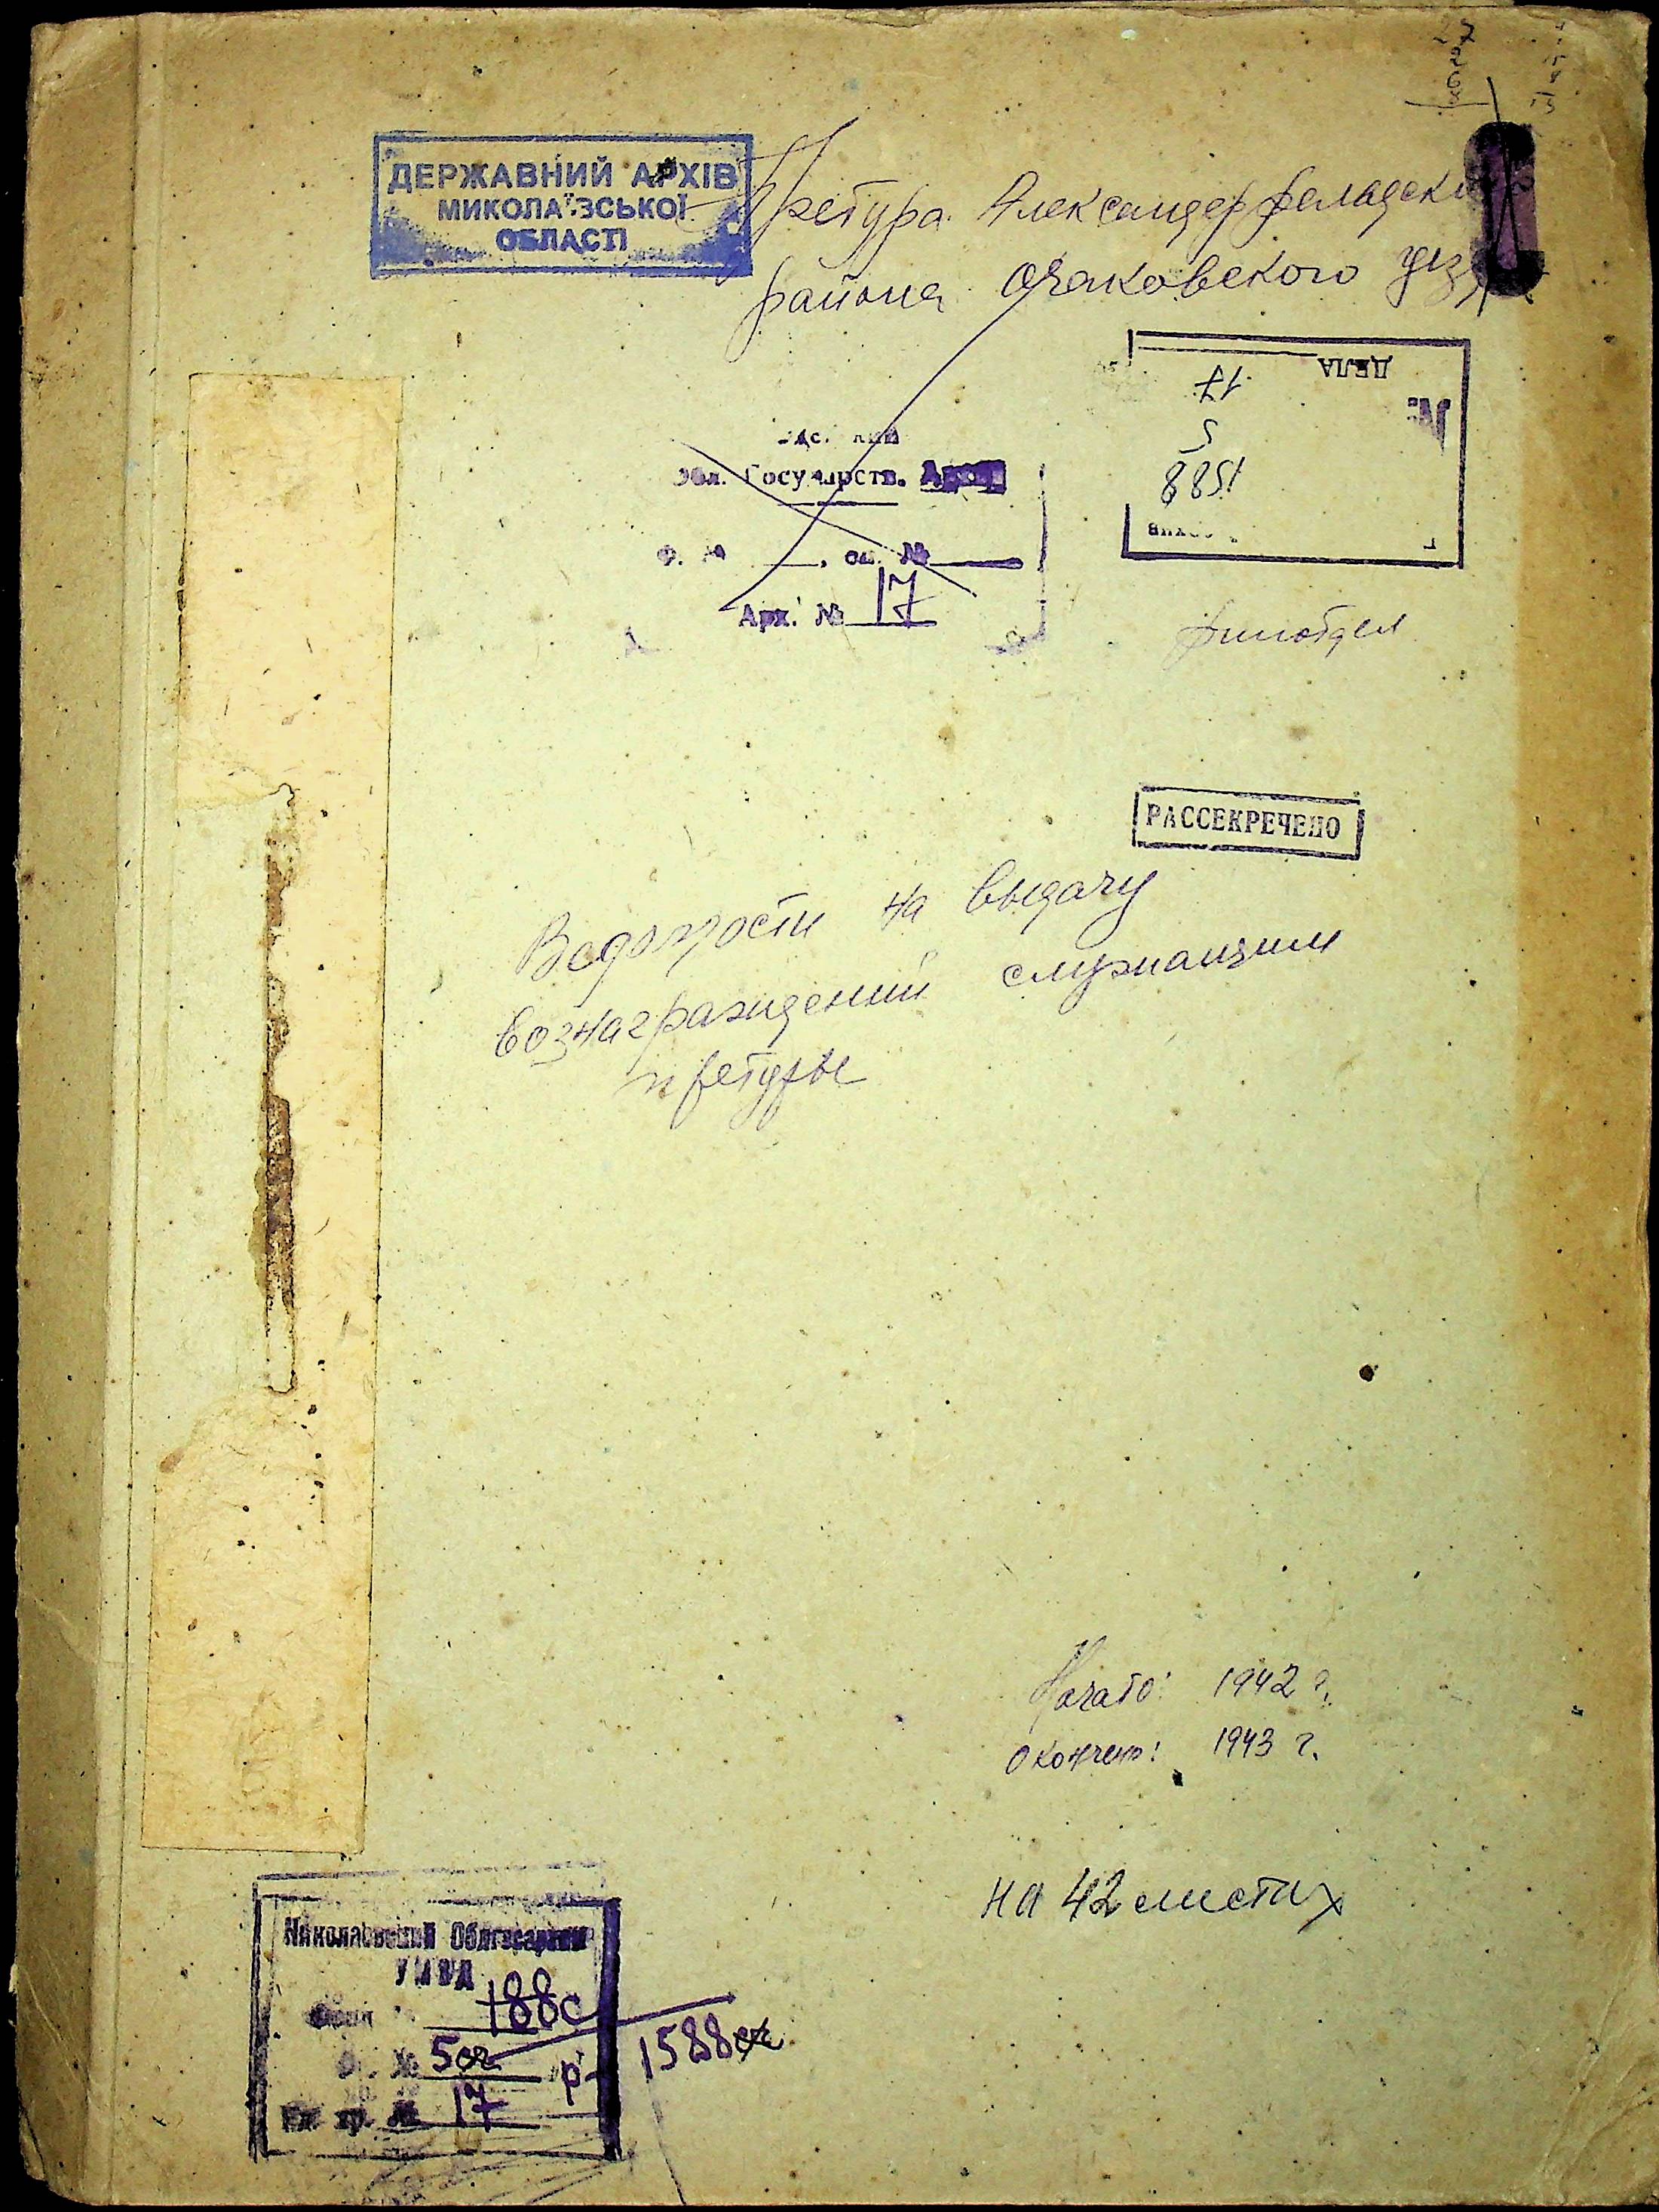 ДЕРЖАВНИЙ АРХІВ
МИКОЛАЇВСЬКОЇ
ОБЛАСТІ
Претура Александерфельдского
района Очаковского уезда
ДЕЛА
№
17
5
1588
Обл. Государств. Архив
Ф. № , оп. №
Арх. № 17
финотдел
РАССЕКРЕЧЕНО
Ведомости на выдачу
вознаграждений служащим
претуры
Начато: 1942 г.
Окончено: 1943 г.
на 42 листах
Николаевский Облгосархив
УМВД
Фонд № 188с
Оп. № 5 р-1588
Ед. хр. № 17